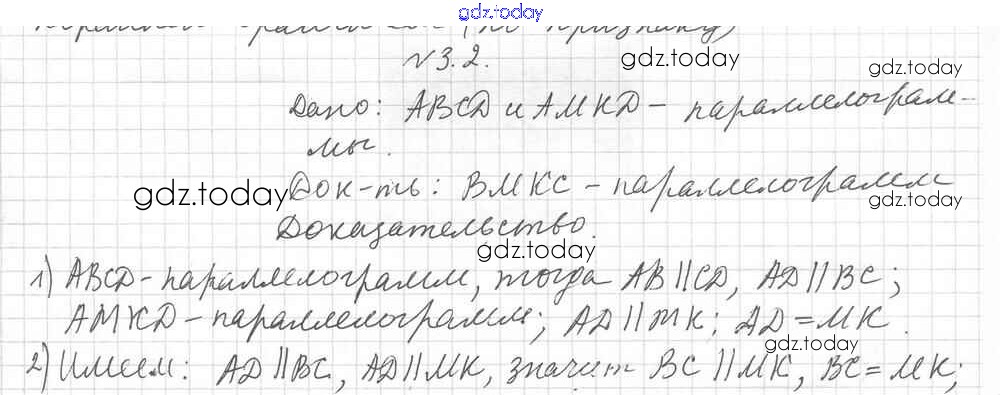 gdz.today
N 3.2.
gdz.today
gdz.today
Дано: ABCD и AMKD - параллелограм-
мы.
gdz.today
Док-ть: BMKC - параллелограмм
gdz.today
Доказательство.
gdz.today
1) ABCD - параллелограмм, тогда AB || CD, AD || BC;
AMKD - параллелограмм; AD || MK; AD = MK.
gdz.today
2) Имеем: AD || BC, AD || MK, значит BC || MK, BC = MK;